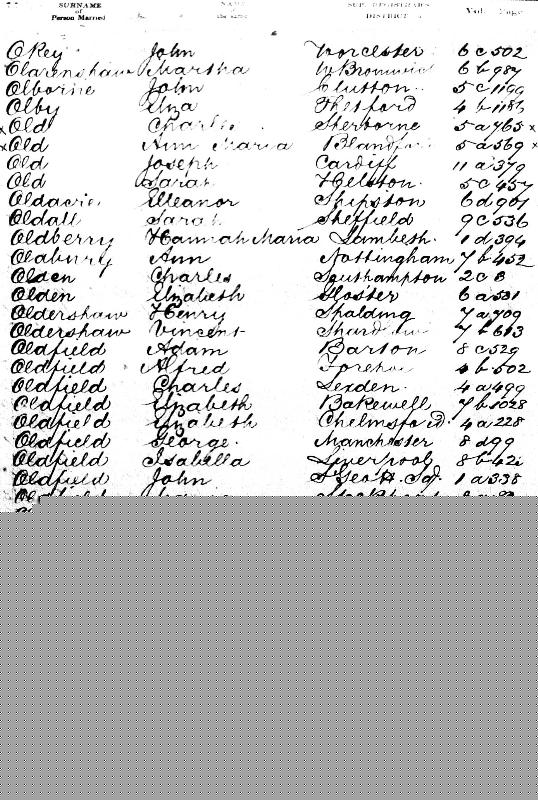 SURNAME of Person Married SUP. REGISTRAR'S DISTRICT Vol. Page
Okey John Worcester 6 c 502
Martha W Bromwich 6 b 987
Olborne John Clutton 5 c 1199
Olby Eliza Thetford 4 b 1186
x Old Charles Sherborne 5 a 765 x
x Old Ann Maria Blandford 5 a 569 x
Old Joseph Cardiff 11 a 379
Old Sarah Helston 5 c 457
Oldacre Elleanor Shipston 6 d 901
Oldall Sarah Sheffield 9 c 536
Oldberry Hannah Maria Lambeth 1 d 394
Oldbury Ann Nottingham 7 b 452
Olden Charles Southampton 2 c 8
Olden Elizabeth Gloster 6 a 531
Oldershaw Henry Spalding 7 a 709
Oldershaw Vincent Shardlow 7 b 613
Oldfield Adam Barton 8 c 529
Oldfield Alfred Forehoe 4 b 502
Oldfield Charles Lexden 4 a 499
Oldfield Elizabeth Bakewell 7 b 1028
Oldfield Elizabeth Chelmsford 4 a 228
Oldfield George Manchester 8 d 99
Oldfield Isabella Liverpool 8 b 421
Oldfield John St Geo H. Sq. 1 a 338